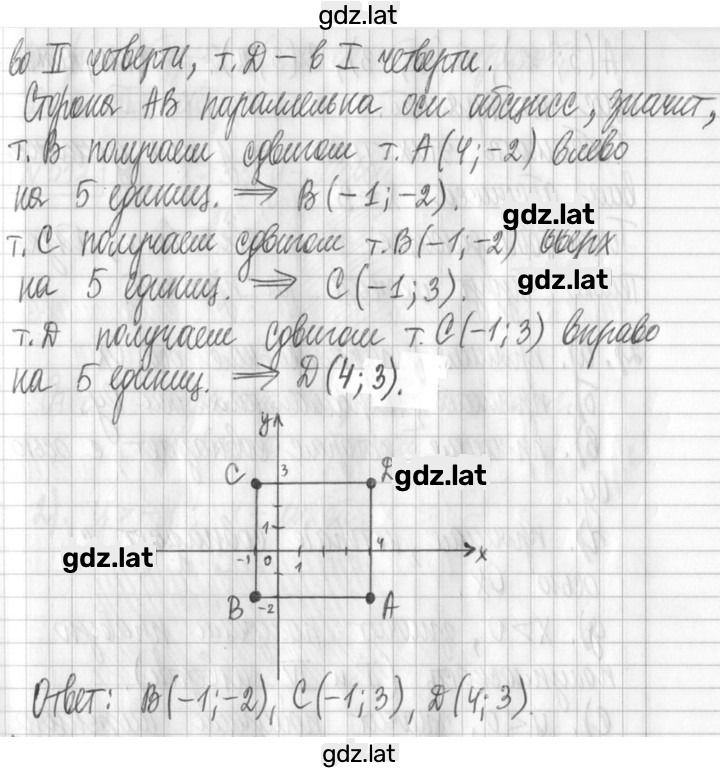 gdz.lat
во II четверти, т. D – в I четверти.
Сторона AB параллельна оси абсцисс, значит,
т. B получаем сдвигом т. A(4; -2) влево
на 5 единиц. ⇒ B(-1; -2).
gdz.lat
т. C получаем сдвигом т. B(-1; -2) вверх
на 5 единиц. ⇒ C(-1; 3).
gdz.lat
т. D получаем сдвигом т. C(-1; 3) вправо
на 5 единиц. ⇒ D(4; 3).
y
C 3 D
gdz.lat
1
gdz.lat
-1 0 1 4 x
B -2 A
Ответ: B(-1; -2), C(-1; 3), D(4; 3).
gdz.lat